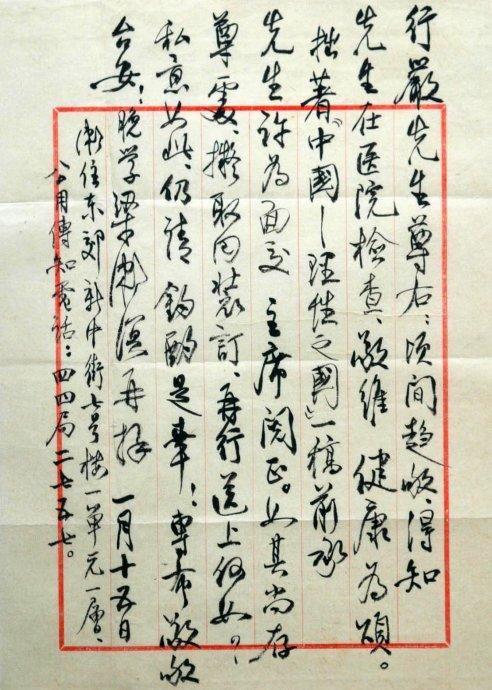 行嚴先生尊右：頃間趋候、得知
先生在医院檢查、敬維 健康為頌。
拙著「中國—理性之國」一稿前承
先生許為面交 主席閱正。如其尚存
尊處、擬取回裝訂、再行送上何如？、
私意如此、仍請 鈞酌是幸！專布敬候
台安！ 晚学梁漱溟再拜 一月十五日
漱住东郊新中街七号楼一單元一層、
公用傳知電話：四四局二七五七。